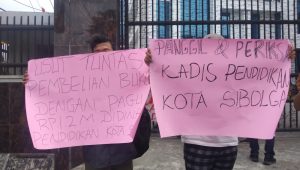 USUT TUNTAS
PEMBELIAN BUKU
DENGAN PAGU
RP12M DIDINAS
PENDIDIKAN KOTA
PANGGIL & PERIKSA
KADIS PENDIDIKAN
KOTA SIBOLGA